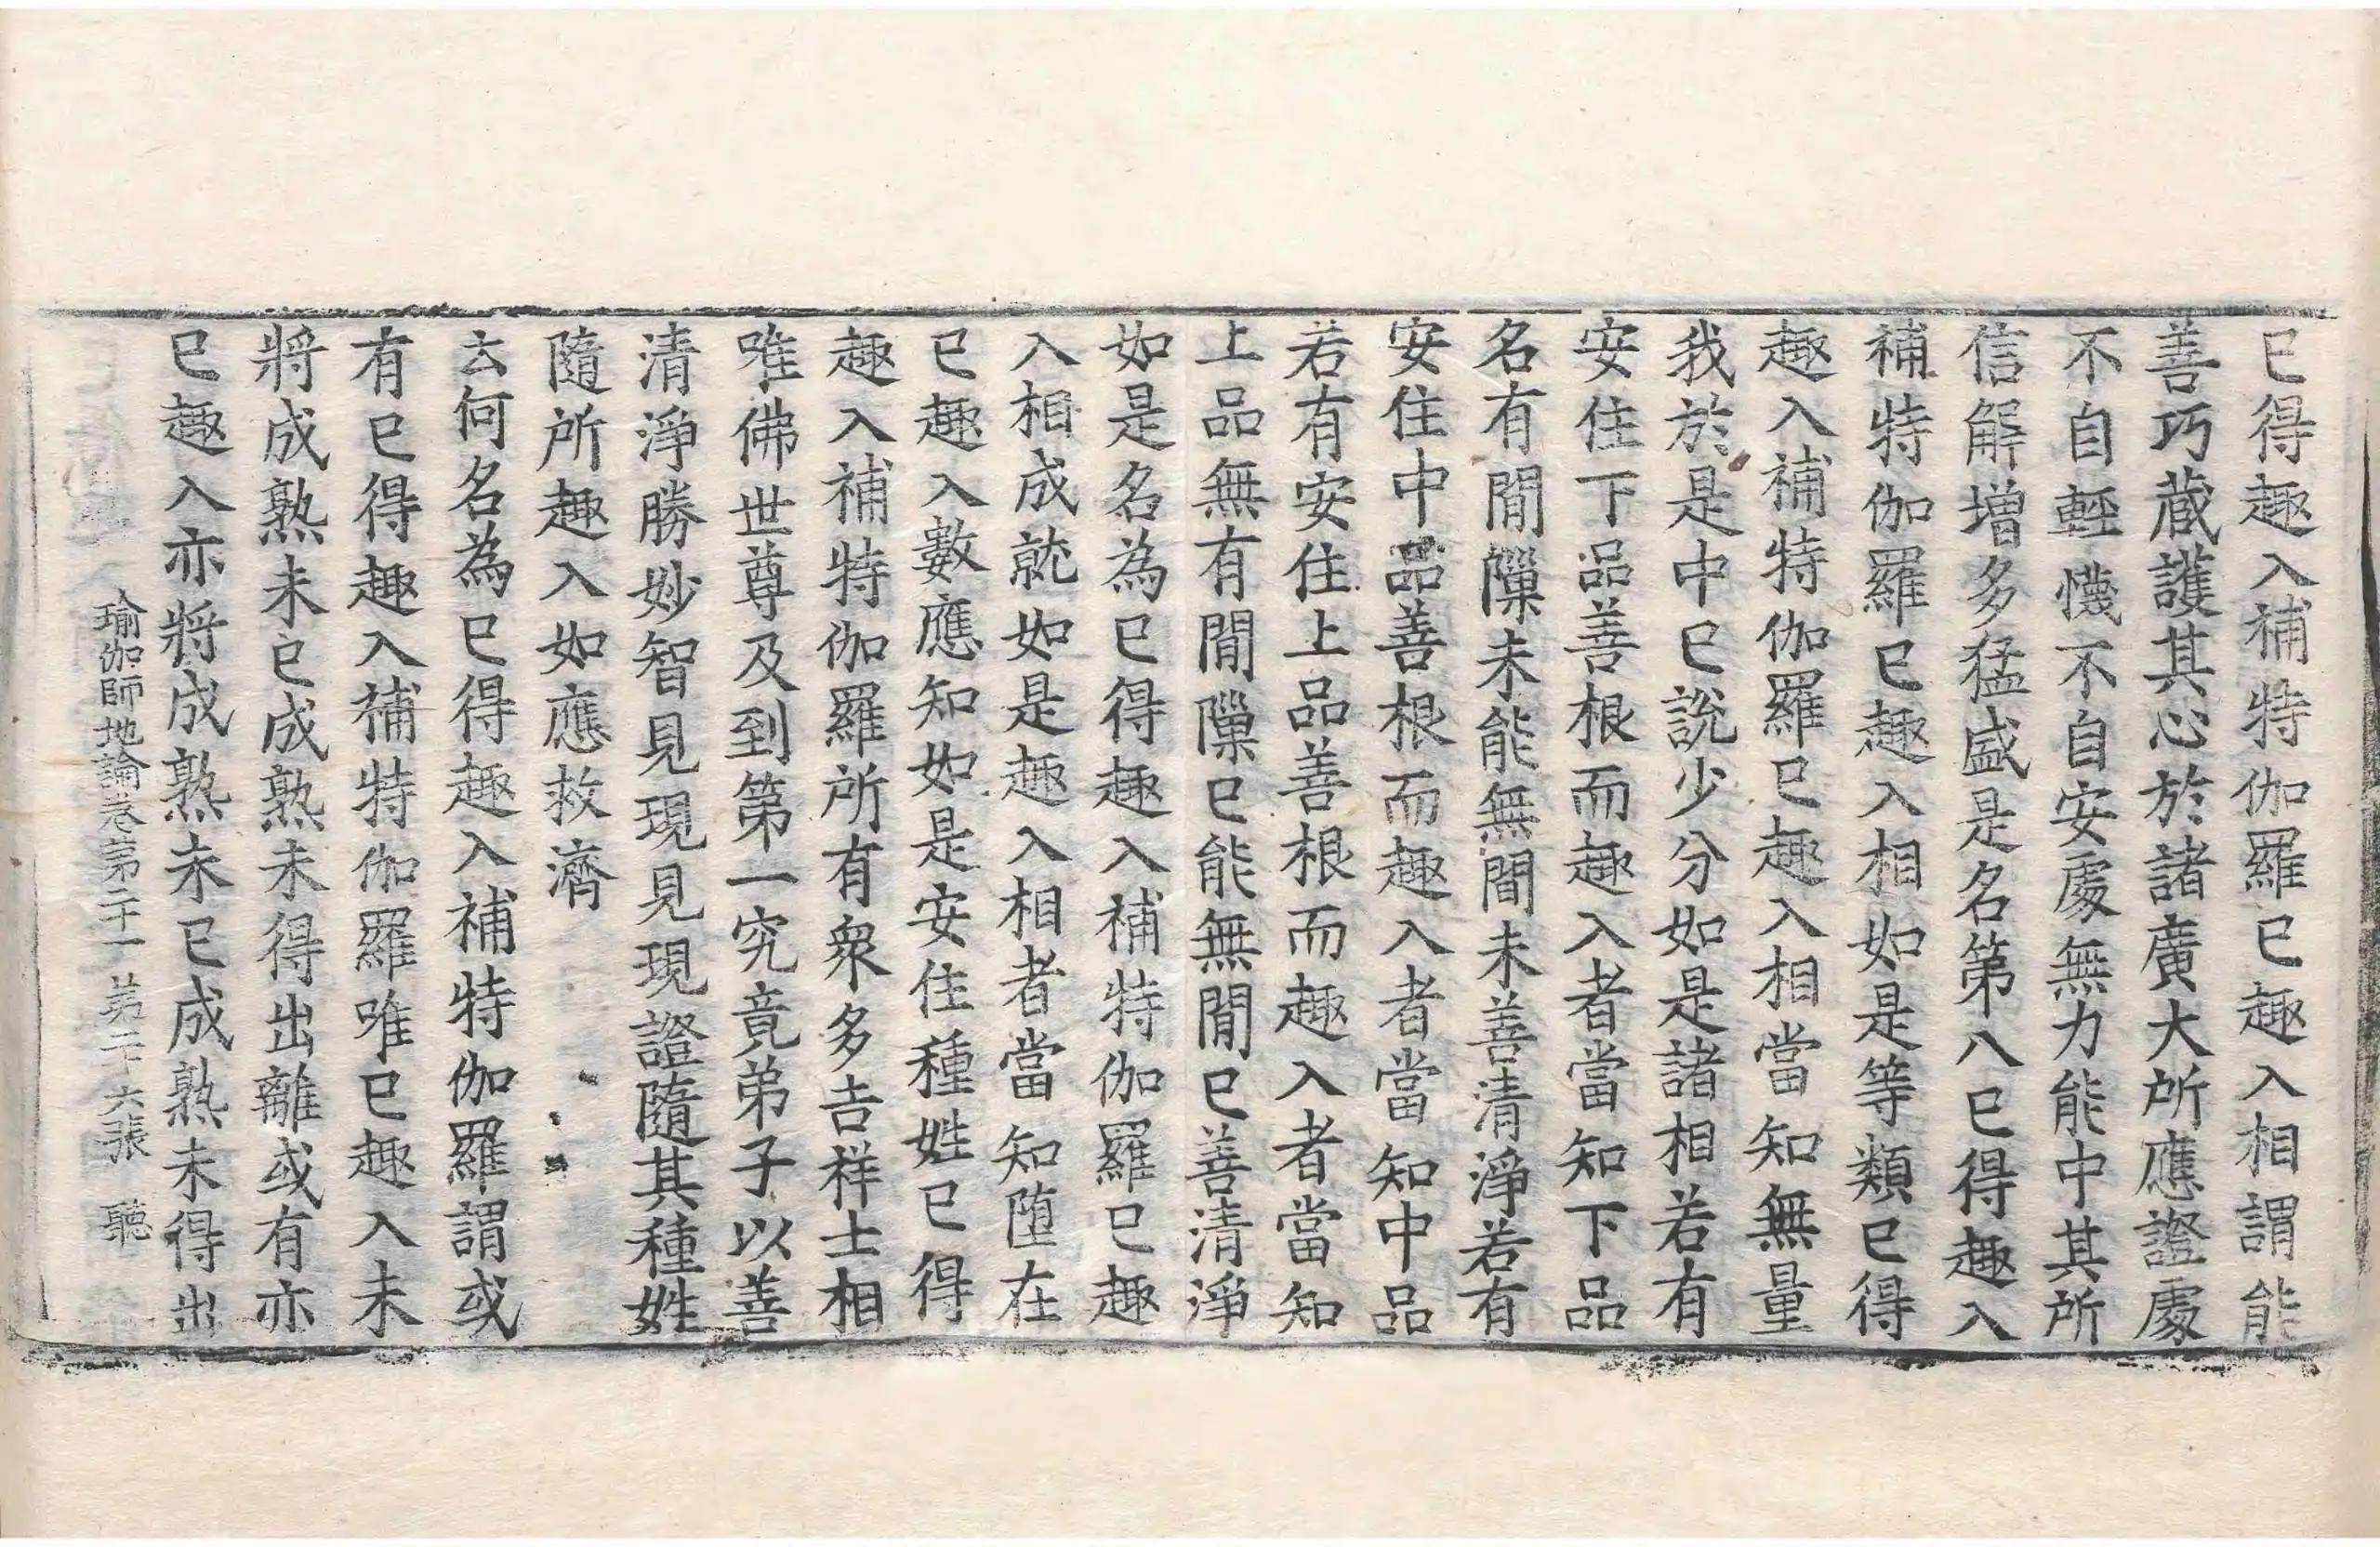 已得趣入補特伽羅已趣入相謂能
善巧藏護其心於諸廣大所應證處
不自輕懱不自安處無力能中其所
信解增多猛盛是名第八已得趣入
補特伽羅已趣入相如是等類已得
趣入補特伽羅已趣入相當知無量
我於是中已說少分如是諸相若有
安住下品善根而趣入者當知下品
名有間隟未能無間未善清淨若有
安住中品善根而趣入者當知中品
若有安住上品善根而趣入者當知
上品無有間隟已能無間已善清淨
如是名為已得趣入補特伽羅已趣
入相成就如是趣入相者當知堕在
已趣入數應知如是安住種姓已得
趣入補特伽羅所有衆多吉祥士相
唯佛世尊及到第一究竟弟子以善
清淨勝妙智見現見現證隨其種姓
隨所趣入如應救濟
云何名為已得趣入補特伽羅謂或
有已得趣入補特伽羅唯已趣入未
將成熟未已成熟未得出離或有亦
已趣入亦將成熟未已成熟未得出
瑜伽師地論卷第二十一 第二十六張 聽